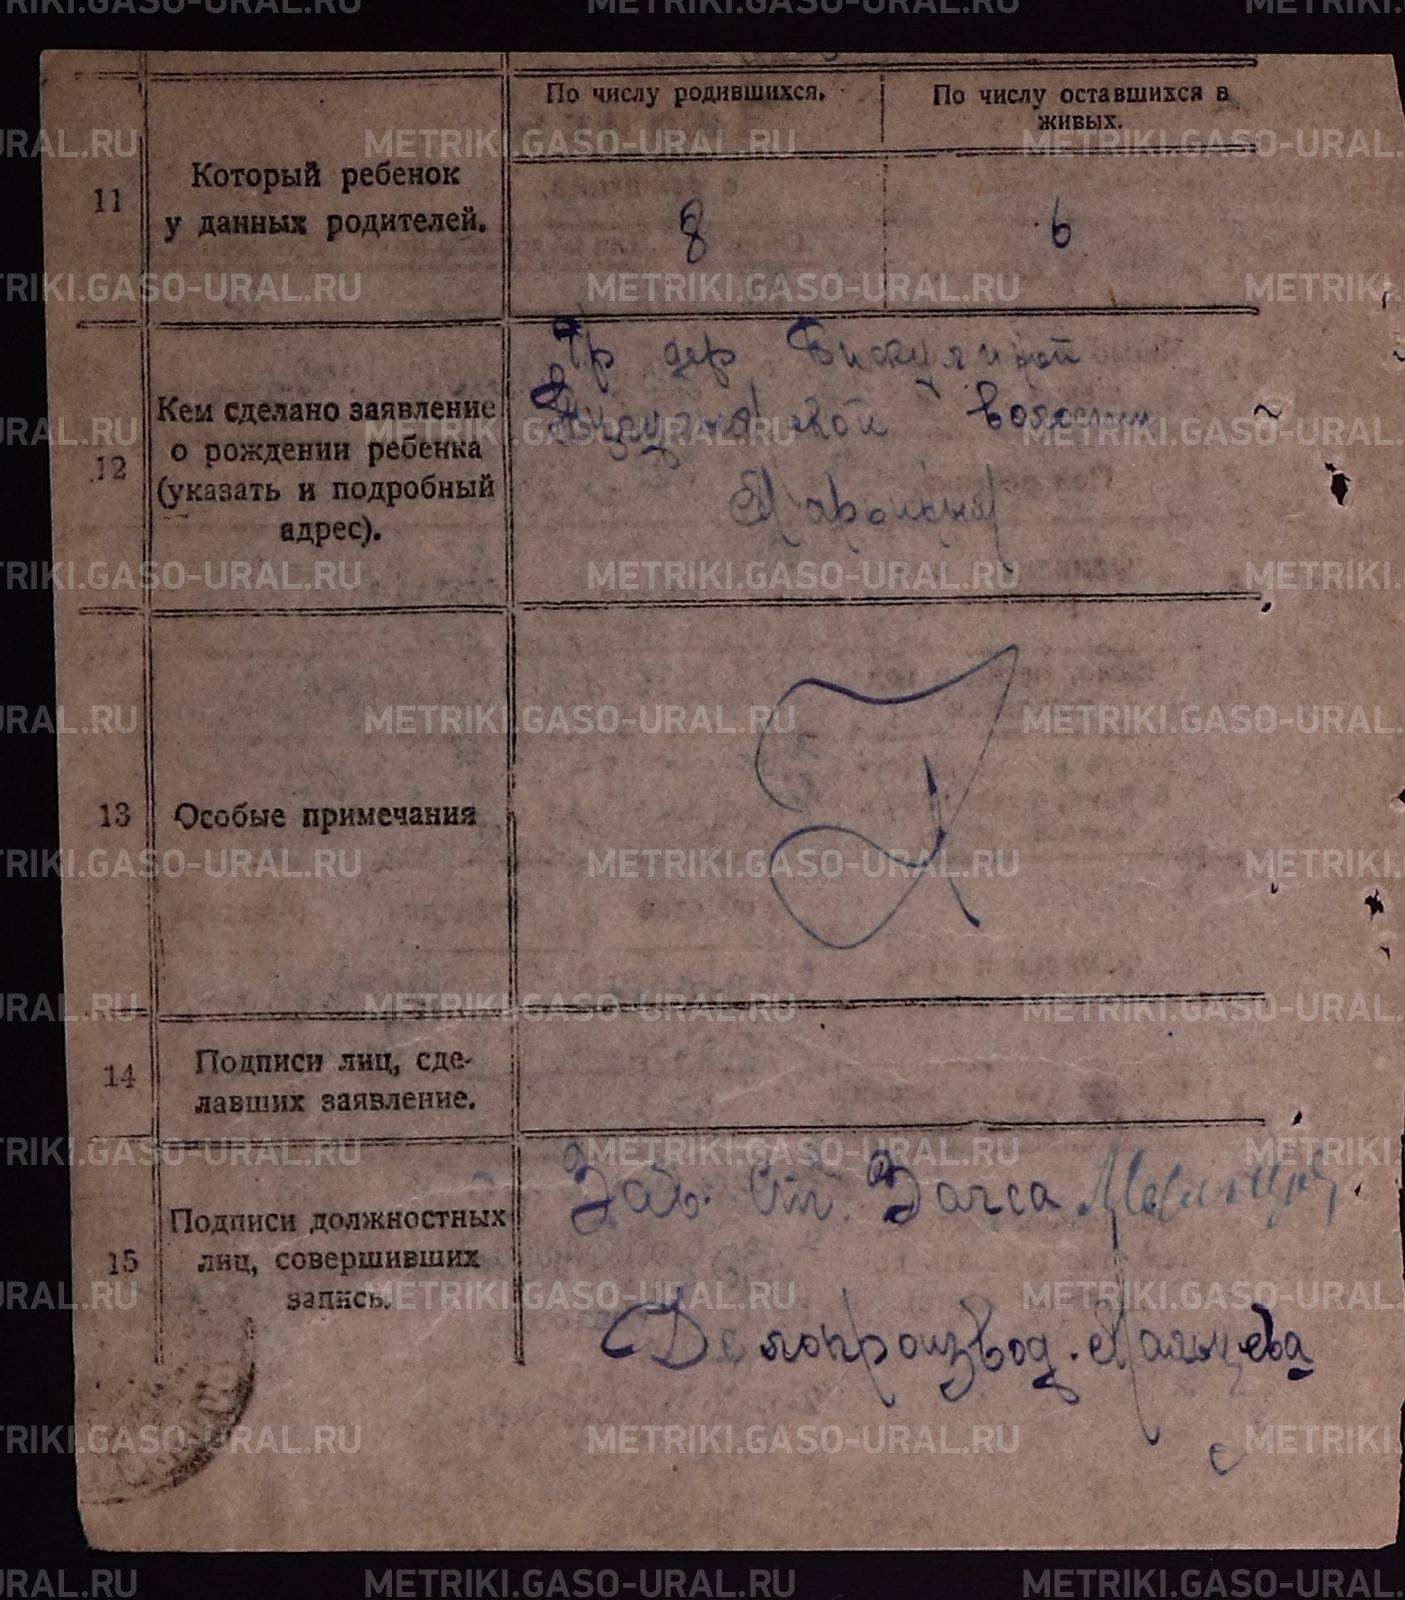 По числу родившихся.
По числу оставшихся в
живых.
11
Который ребенок
у данных родителей.
8
6
12
Кем сделано заявление
о рождении ребенка
(указать и подробный
адрес).
Гр дер
волости
13
Особые примечания
14
Подписи лиц, сде-
лавших заявление.
15
Подписи должностных
лиц, совершивших
запись.
Зав. От. Загса
Делопроизвод.
METRIKI.GASO-URAL.RU